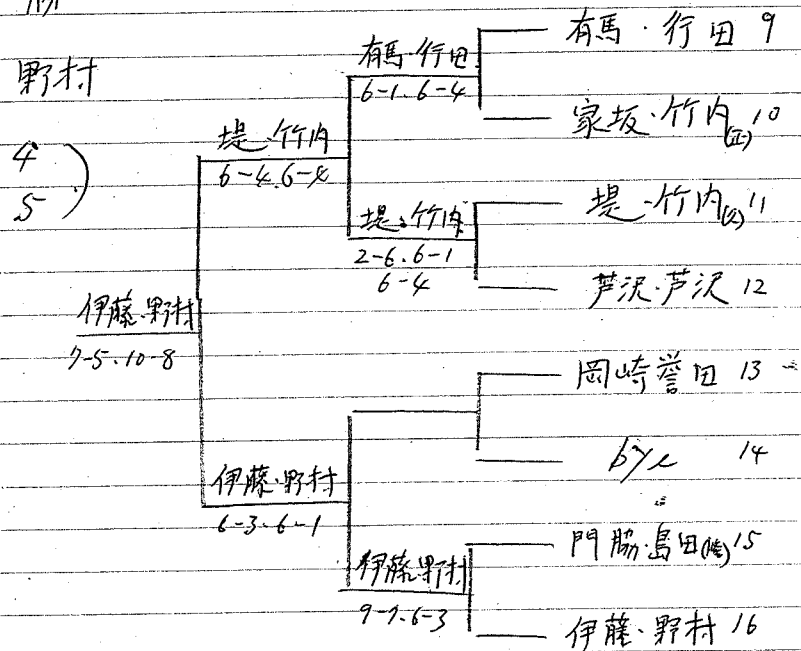 野村
4
5)
伊藤・野村
7-5.10-8
堤・竹内
6-4.6-4
伊藤・野村
6-3.6-1
有馬・行田
6-1.6-4
堤・竹内
2-6.6-1
6-4
伊藤・野村
9-7.6-3
有馬・行田 9
家坂・竹内(正) 10
堤・竹内 11
芦沢・芦沢 12
岡崎誉田 13
bye 14
門脇・島田 15
伊藤・野村 16